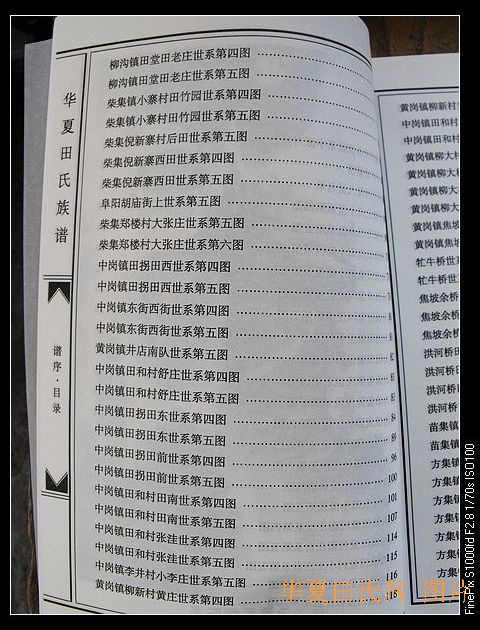 华夏田氏族谱
谱序·目录
柳沟镇田堂田老庄世系第四图
柳沟镇田堂田老庄世系第五图
柴集镇小寨村田竹园世系第四图
柴集镇小寨村田竹园世系第五图
柴集倪新寨村后田世系第五图
柴集倪新寨西田世系第四图
柴集倪新寨西田世系第五图
阜阳胡庙街上世系第五图
柴集郑楼村大张庄世系第五图
柴集郑楼村大张庄世系第六图
中岗镇田拐田西世系第四图
中岗镇田拐田西世系第五图
中岗镇东街西街世系第四图
中岗镇东街西街世系第五图
黄岗镇井店南队世系第五图 82
中岗镇田和村舒庄世系第四图 83
中岗镇田和村舒庄世系第五图 83
中岗镇田拐田东世系第四图 84
中岗镇田拐田东世系第五图 89
中岗镇田拐田前世系第四图 96
中岗镇田拐田前世系第五图 100
中岗镇田和村田南世系第四图 101
中岗镇田和村田南世系第五图 107
中岗镇田和村张洼世系第四图 114
中岗镇田和村张洼世系第五图 115
中岗镇李井村小李庄世系第五图 116
黄岗镇柳新村黄庄世系第四图 118
黄岗镇柳新村
中岗镇田和村
中岗镇田和村
黄岗镇柳大村
黄岗镇柳大村
黄岗镇柳大村
黄岗镇柳大村
黄岗镇焦坡
黄岗镇焦坡
牤牛桥世
牤牛桥世
焦坡余桥
焦坡余桥
焦坡余桥
洪河桥田
洪河桥田
洪河桥
苗集镇
苗集镇
方集镇
方集镇
方集镇
方集镇
方集镇
方集镇
方集镇
华夏田氏网 图片
FinePix S1000fd F2.8 1/70s ISO100